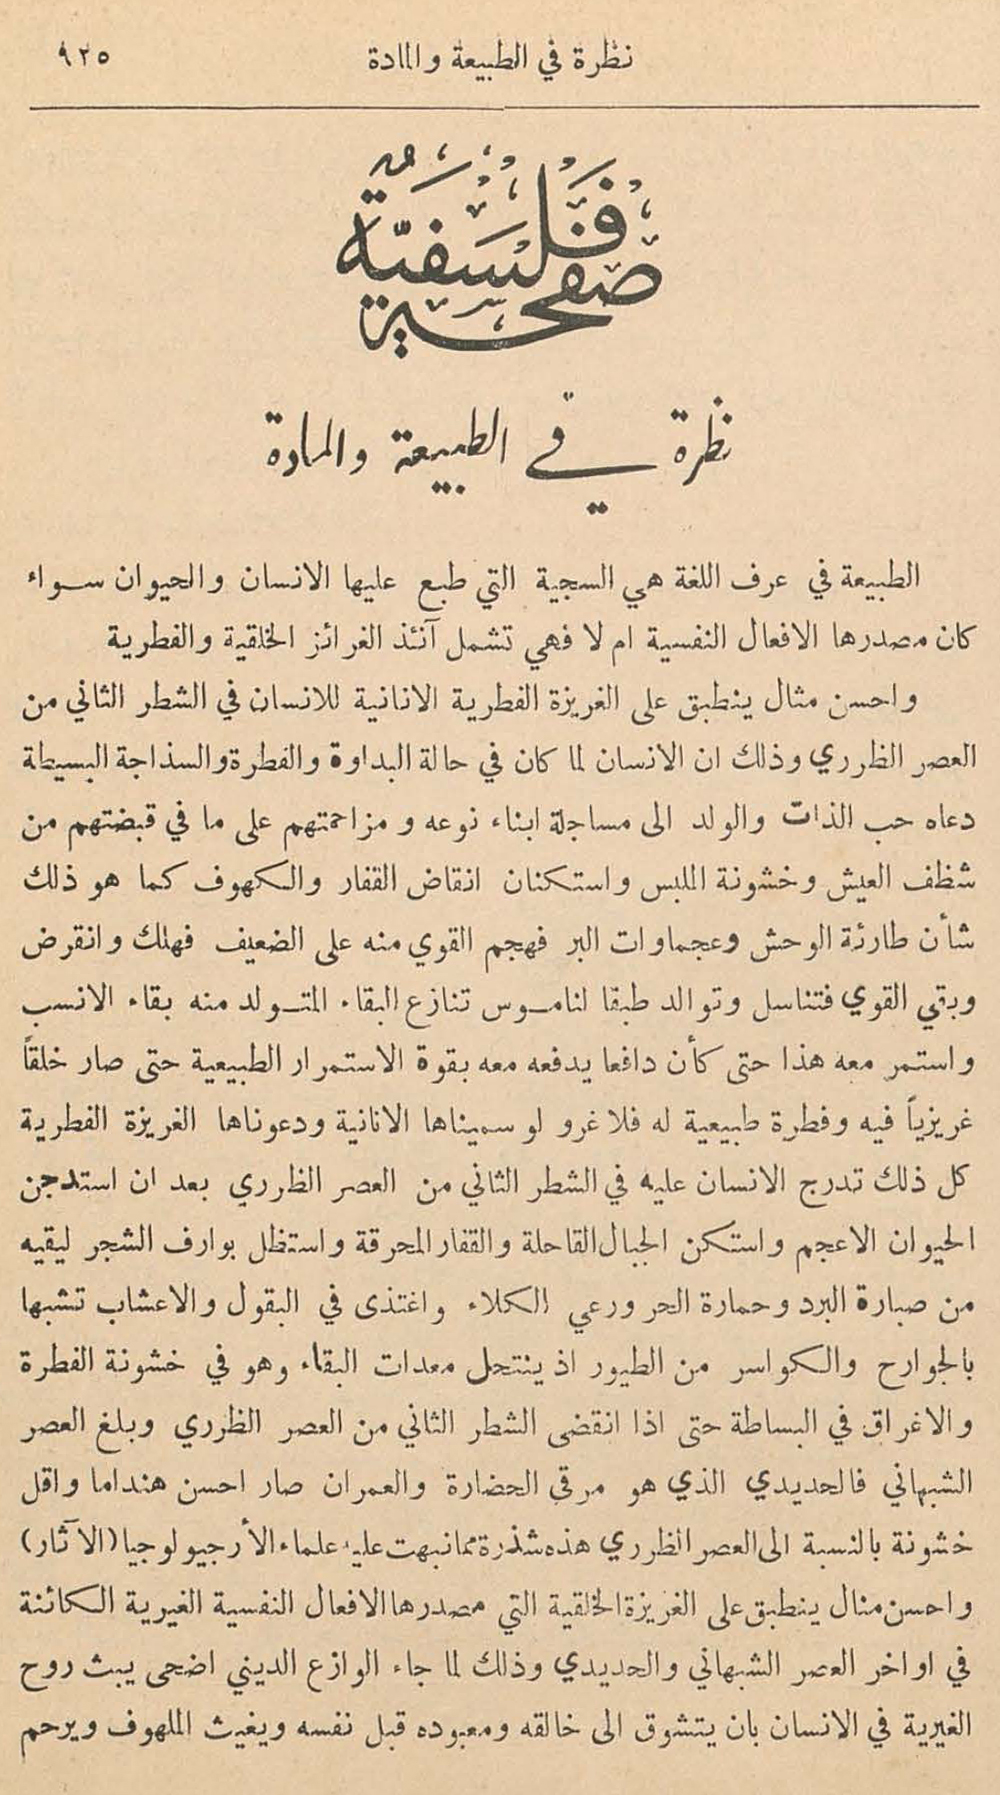 نظرة في الطبيعة والمادة ٩٢٥
صفحة فلسفية
نظرة في الطبيعة والمادة
الطبيعة في عرف اللغة هي السجية التي طبع عليها الانسان والحيوان سواء
كان مصدرها الافعال النفسية ام لا فهي تشمل آنئذ الغرائز الخلقية والفطرية
واحسن مثال ينطبق على الغريزة الفطرية الانانية للانسان في الشطر الثاني من
العصر الظرري وذلك ان الانسان لما كان في حالة البداوة والفطرة والسذاجة البسيطة
دعاه حب الذات والولد الى مساجلة ابناء نوعه ومزاحمتهم على ما في قبضتهم من
شظف العيش وخشونة الملبس واستكنان انقاض القفار والكهوف كما هو ذلك
شأن طارئة الوحش وعجماوات البر فهجم القوي منه على الضعيف فهلك وانقرض
وبقي القوي فتناسل وتوالد طبقا لناموس تنازع البقاء المتولد منه بقاء الانسب
واستمر معه هذا حتى كأن دافعا يدفعه معه بقوة الاستمرار الطبيعية حتى صار خلقاً
غريزياً فيه وفطرة طبيعية له فلا غرو لو سميناها الانانية ودعوناها الغريزة الفطرية
كل ذلك تدرج الانسان عليه في الشطر الثاني من العصر الظرري بعد ان استدجن
الحيوان الاعجم واستكن الجبال القاحلة والقفار المحرقة واستظل بوارف الشجر ليقيه
من صبارة البرد وحمارة الحر ورعي الكلاء واغتذى في البقول والاعشاب تشبها
بالجوارح والكواسر من الطيور اذ ينتحل معدات البقاء وهو في خشونة الفطرة
والاغراق في البساطة حتى اذا انقضى الشطر الثاني من العصر الظرري وبلغ العصر
الشبهاني فالحديدي الذي هو مرقي الحضارة والعمران صار احسن هنداما واقل
خشونة بالنسبة الى العصر الظرري هذه شذرة مما نبهت عليه علماء الأرجيولوجيا (الآثار)
واحسن مثال ينطبق على الغريزة الخلقية التي مصدرها الافعال النفسية الغيرية الكائنة
في اواخر العصر الشبهاني والحديدي وذلك لما جاء الوازع الديني اضحى يبث روح
الغيرية في الانسان بان يتشوق الى خالقه ومعبوده قبل نفسه ويغيث الملهوف ويرحم